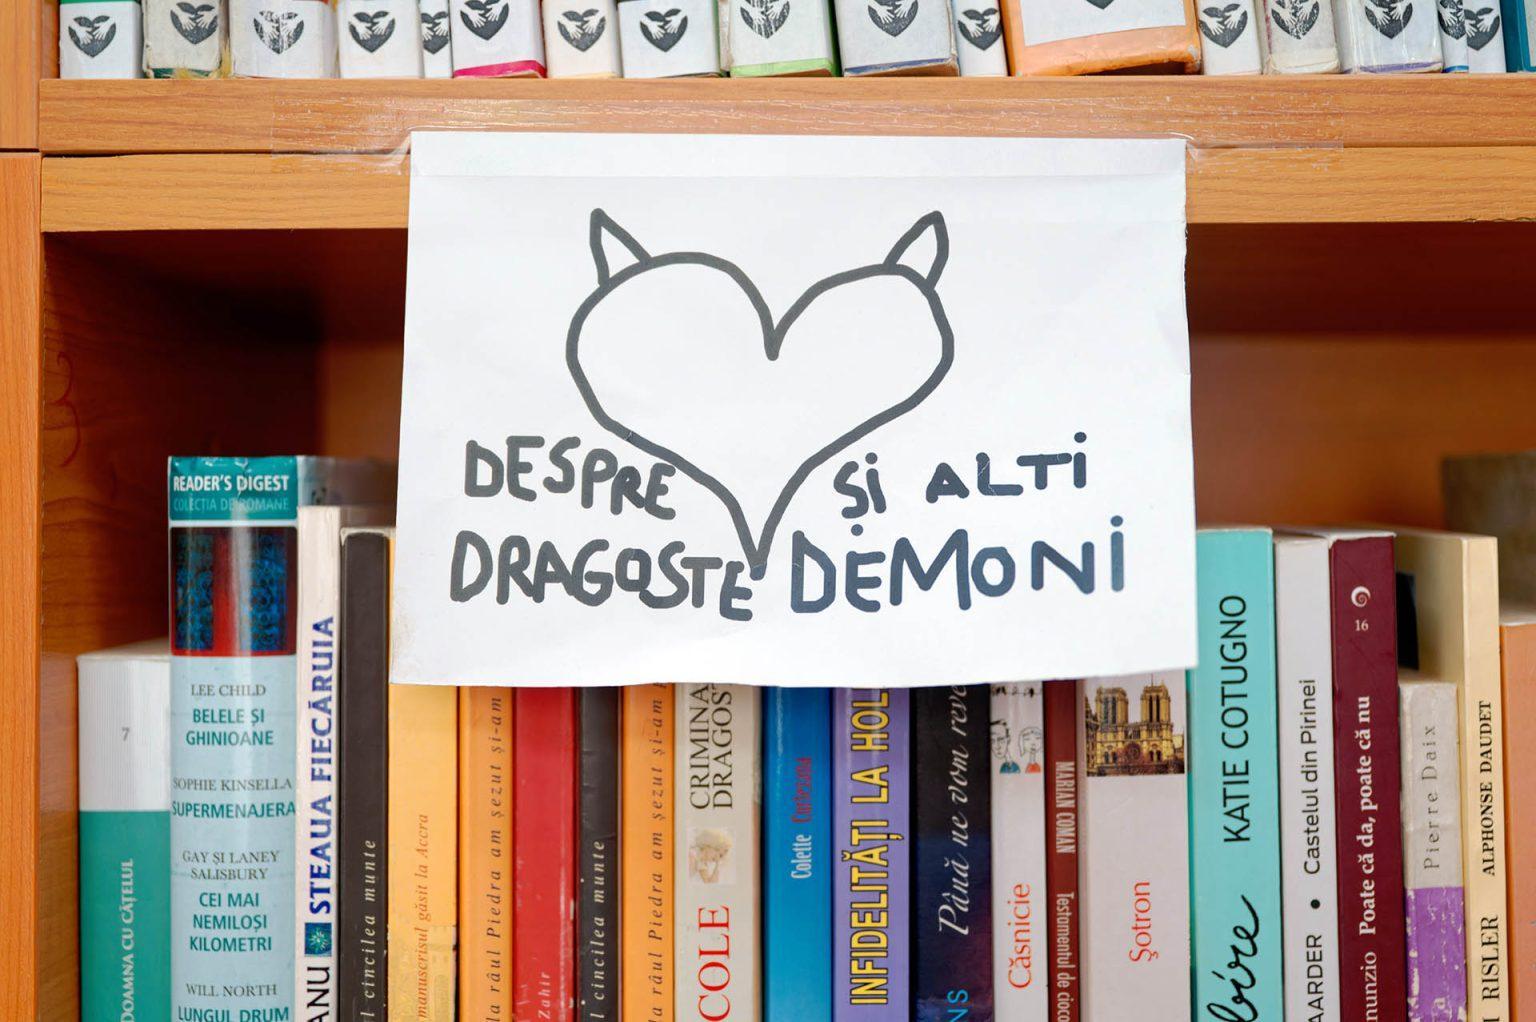 DESPRE
DRAGOSTE
ȘI ALTI
DEMONI
7
DOAMNA CU CĂȚELUL
READER'S DIGEST
COLECȚIA DE ROMANE
LEE CHILD
BELELE ȘI
GHINIOANE
SOPHIE KINSELLA
SUPERMENAJERA
GAY ȘI LANEY
SALISBURY
CEI MAI
NEMILOȘI
KILOMETRI
WILL NORTH
LUNGUL DRUM
STEAUA FIECĂRUIA
cincilea munte
manuscrisul găsit la Accra
la râul Piedra am șezut și-am
Zahir
cincilea munte
la râul Piedra am șezut și-am
COLE
Colette Curtezana
INFIDELITĂȚI LA
Până ne vom
Căsnicie
MARIAN COMAN
Testamentul de
Șotron
KATIE COTUGNO
AARDER • Castelul din Pirinei
16
Poate că da, poate că nu
Pierre Daix
RISLER ALPHONSE DAUDET